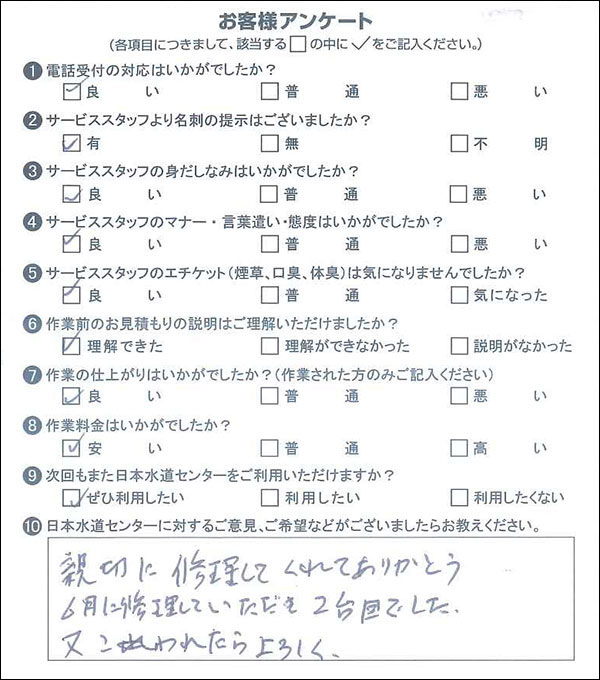 お客様アンケート
(各項目につきまして、該当する□の中に✓をご記入ください。)
❶ 電話受付の対応はいかがでしたか?
☑良い □普通 □悪い
❷ サービススタッフより名刺の提示はございましたか?
☑有 □無 □不明
❸ サービススタッフの身だしなみはいかがでしたか?
☑良い □普通 □悪い
❹ サービススタッフのマナー・言葉遣い・態度はいかがでしたか?
☑良い □普通 □悪い
❺ サービススタッフのエチケット(煙草、口臭、体臭)は気になりませんでしたか?
☑良い □普通 □気になった
❻ 作業前のお見積もりの説明はご理解いただけましたか?
☑理解できた □理解ができなかった □説明がなかった
❼ 作業の仕上がりはいかがでしたか?(作業された方のみご記入ください)
☑良い □普通 □悪い
❽ 作業料金はいかがでしたか?
☑安い □普通 □高い
❾ 次回もまた日本水道センターをご利用いただけますか?
☑ぜひ利用したい □利用したい □利用したくない
❿ 日本水道センターに対するご意見、ご希望などがございましたらお教えください。
親切に修理してくれてありがとう
6月に修理していただき2台目でした。
又こわれたらよろしく、